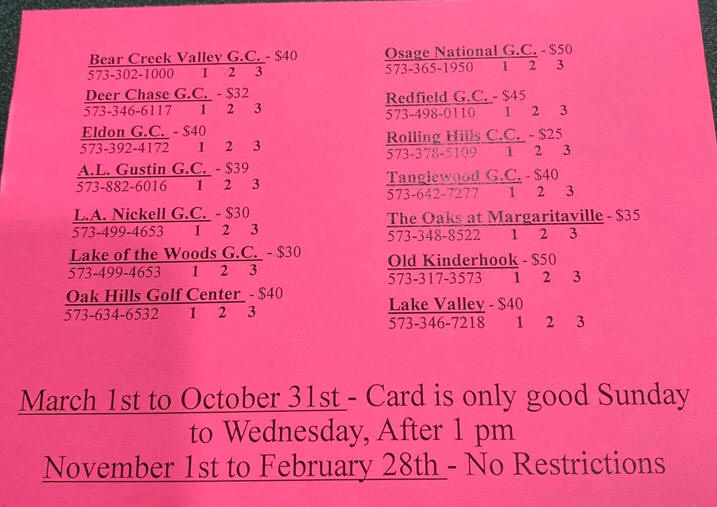 Bear Creek Valley G.C. - $40
573-302-1000 1 2 3
Deer Chase G.C. - $32
573-346-6117 1 2 3
Eldon G.C. - $40
573-392-4172 1 2 3
A.L. Gustin G.C. - $39
573-882-6016 1 2 3
L.A. Nickell G.C. - $30
573-499-4653 1 2 3
Lake of the Woods G.C. - $30
573-499-4653 1 2 3
Oak Hills Golf Center - $40
573-634-6532 1 2 3
Osage National G.C. - $50
573-365-1950 1 2 3
Redfield G.C. - $45
573-498-0110 1 2 3
Rolling Hills C.C. - $25
573-378-5109 1 2 3
Tanglewood G.C. - $40
573-642-7277 1 2 3
The Oaks at Margaritaville - $35
573-348-8522 1 2 3
Old Kinderhook - $50
573-317-3573 1 2 3
Lake Valley - $40
573-346-7218 1 2 3
March 1st to October 31st - Card is only good Sunday
to Wednesday, After 1 pm
November 1st to February 28th - No Restrictions